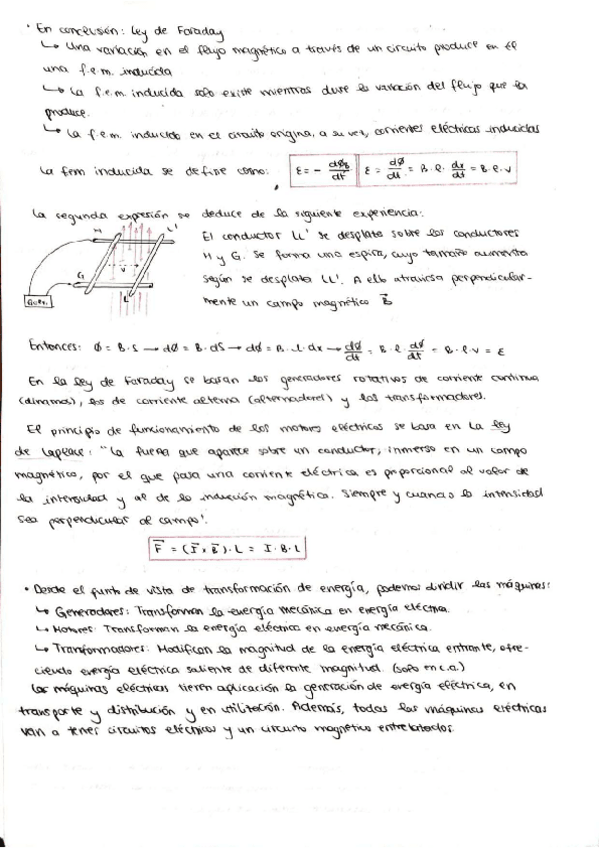 · En conclusión: Ley de Faraday
↳ Una variación en el flujo magnético a través de un circuito produce en él
una f.e.m. inducida
↳ La f.e.m. inducida solo existe mientras dure la variación del flujo que la
produce.
↳ La f.e.m. inducida en el circuito origina, a su vez, corrientes eléctricas inducidas
La fem inducida se define como: ε = - dØB/dt ε = dØ/dt = B·l· dx/dt = B·l·v
La segunda expresión se deduce de la siguiente experiencia:
H L'
El conductor LL' se desplaza sobre los conductores
H y G. Se forma una espira, cuyo tamaño aumenta
v
según se desplaza LL'. A ello atraviesa perpendicular-
L G
mente un campo magnético B⃗
Entonces: Ø = B·S → dØ = B·dS → dØ = B·l·dx → dØ/dt = B·l· dØ/dt = B·l·v = ε
En la ley de Faraday se basan los generadores rotativos de corriente continua
(dinamos), los de corriente alterna (alternadores) y los transformadores.
El principio de funcionamiento de los motores eléctricos se basa en la ley
de Laplace: "La fuerza que aparece sobre un conductor, inmerso en un campo
magnético, por el que pasa una corriente eléctrica es proporcional al valor de
la intensidad y al de la inducción magnética. Siempre y cuando la intensidad
sea perpendicular al campo".
F⃗ = (I⃗ x B⃗)·L = I·B·L
· Desde el punto de vista de transformación de energía, podemos dividir las máquinas:
↳ Generadores: Transforman la energía mecánica en energía eléctrica.
↳ Motores: Transforman la energía eléctrica en energía mecánica.
↳ Tranformadores: Modifican la magnitud de la energía eléctrica entrante, ofre-
ciendo energía eléctrica saliente de diferente magnitud. (solo en c.a.)
Las máquinas eléctricas tienen aplicación la generación de energía eléctrica, en
transporte y distribución y en utilización. Además, todas las máquinas eléctricas
van a tener circuitos eléctricos y un circuito magnético entrelazados.